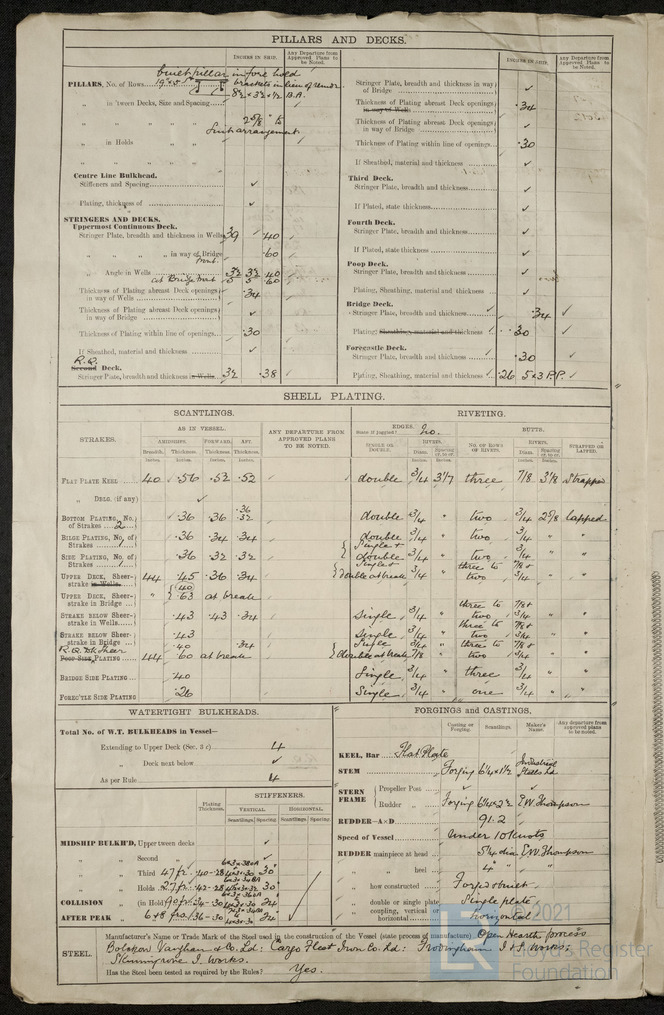 PILLARS AND DECKS.
INCHES IN SHIP.
Any Departure from Approved Plans to be Noted.
built pillar in fore hold
PILLARS, No. of Rows
brackets in lieu of under
8½ × 3½ × ½ B.A.
„ in 'tween Decks, Size and Spacing
2⅝ " to
Suit arrangement
„ in Holds „ „
„ „ „ „
Centre Line Bulkhead.
Stiffeners and Spacing ✓
Plating, thickness of ✓
STRINGERS AND DECKS.
Uppermost Continuous Deck.
Stringer Plate, breadth and thickness in Wells 39 .40
„ „ „ „ in way of Bridge .60
front.
„ Angle in Wells 3½ 3½ .40
at Bridge front 5 5 .60
Thickness of Plating abreast Deck openings in way of Wells .34
Thickness of Plating abreast Deck openings in way of Bridge ✓
Thickness of Plating within line of openings .30
If Sheathed, material and thickness ✓
R.Q.
Second Deck.
Stringer Plate, breadth and thickness in Wells 32 .38
INCHES IN SHIP.
Any Departure from Approved Plans to be Noted.
Stringer Plate, breadth and thickness in way of Bridge ✓
Thickness of Plating abreast Deck openings in way of Wells .34
Thickness of Plating abreast Deck openings in way of Bridge ✓
Thickness of Plating within line of openings .30
If Sheathed, material and thickness ✓
Third Deck.
Stringer Plate, breadth and thickness ✓
If Plated, state thickness ✓
Fourth Deck.
Stringer Plate, breadth and thickness ✓
If Plated, state thickness ✓
Poop Deck.
Stringer Plate, breadth and thickness ✓
Plating, Sheathing, material and thickness ✓
Bridge Deck.
Stringer Plate, breadth and thickness .34 ✓
Plating, Sheathing, material and thickness .30 ✓
Forecastle Deck.
Stringer Plate, breadth and thickness .30
Plating, Sheathing, material and thickness .26 5×3 P.P.
SHELL PLATING.
SCANTLINGS.
RIVETING.
STRAKES.
AS IN VESSEL.
AMIDSHIPS. FORWARD. AFT.
Breadth. Thickness. Thickness. Thickness.
ANY DEPARTURE FROM APPROVED PLANS TO BE NOTED.
EDGES. No.
State if joggled?
SINGLE OR DOUBLE.
RIVETS.
Diam. Spacing cr. to cr.
BUTTS.
NO. OF ROWS OF RIVETS.
RIVETS.
Diam. Spacing cr. to cr.
STRAPPED OR LAPPED.
FLAT PLATE KEEL 40 .56 .52 .52 double 3/4 three 7/8 3⅛ Strapped
„ DBLG. (if any) ✓
BOTTOM PLATING, No. of Strakes 2 .36 .36 .36 .32 double 3/4 " two 3/4 2⅝ lapped
BILGE PLATING, No. of Strakes 1 .36 .34 .34 double 3/4 " two 3/4 " "
SIDE PLATING, No. of Strakes 1 .36 .32 .32 Single + double 3/4 " two 3/4 " "
UPPER DECK, Sheer-strake in Wells 44 .45 .36 .34 Single + double at break 3/4 " three to two 7/8 + 3/4 " "
UPPER DECK, Sheer-strake in Bridge " .40 .63 at break
STRAKE BELOW Sheer-strake in Wells .43 .43 .34 Single 3/4 " three to two 7/8 + 3/4 " "
STRAKE BELOW Sheer-strake in Bridge .43 Single 3/4 " three to two 7/8 + 3/4 " "
R.Q. Dk Sheer
Poop Side PLATING 44 .40 .60 at break .34 Single double at break 3/4 7/8 " three to two 7/8 + 3/4 " "
BRIDGE SIDE PLATING .40 Single 3/4 " three 3/4 " "
FORE'C'TLE SIDE PLATING .26 Single 3/4 " one 3/4 " "
WATERTIGHT BULKHEADS.
Total No. of W.T. BULKHEADS in Vessel—
Extending to Upper Deck (Sec. 3 c) 4
„ Deck next below ✓
As per Rule 4
STIFFENERS.
Plating Thickness.
VERTICAL. HORIZONTAL.
Scantlings. Spacing. Scantlings. Spacing.
MIDSHIP BULKH'D, Upper tween decks ✓
„ „ Second „ ✓
„ „ Third „ 47 fr. .40-.28 30
„ „ Holds 27 fr. .42-.28 30
COLLISION „ (in Hold) 90 fr. .36-.30 24
AFTER PEAK „ 6 & 8 frs. .36-.30 24
FORGINGS and CASTINGS.
Casting or Forging. Scantlings. Maker's Name. Any departure from approved plans to be noted.
KEEL, Bar Flat Plate
STEM Forging 6¼ × 1½ Industrial Steels Ld
STERN FRAME Propeller Post ✓
Rudder „ Forging 6¼ × 2½ E.W. Thompson
RUDDER—A×D 91.2
Speed of Vessel Under 10 Knots
RUDDER mainpiece at head 5¼ dia E.W. Thompson
„ „ heel 4 "
„ how constructed Forged & built
„ double or single plate Single plate
„ coupling, vertical or horizontal horizontal
STEEL.
Manufacturer's Name or Trade Mark of the Steel used in the construction of the Vessel (state process of manufacture) Open Hearth process
Bolckow Vaughan & Co. Ld: Cargo Fleet Iron Co. Ld: Frodingham I & S Works:
Skinningrove I. Works.
Has the Steel been tested as required by the Rules? Yes.
© 2021
Lloyd's Register
Foundation